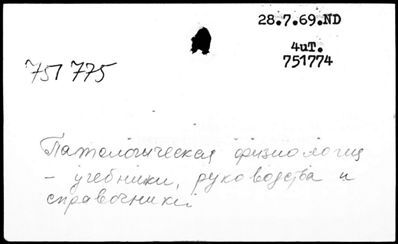 28.7.69.ND
4иТ.
751774
751775
Патологическая физиология
- учебники, руководства и
справочники